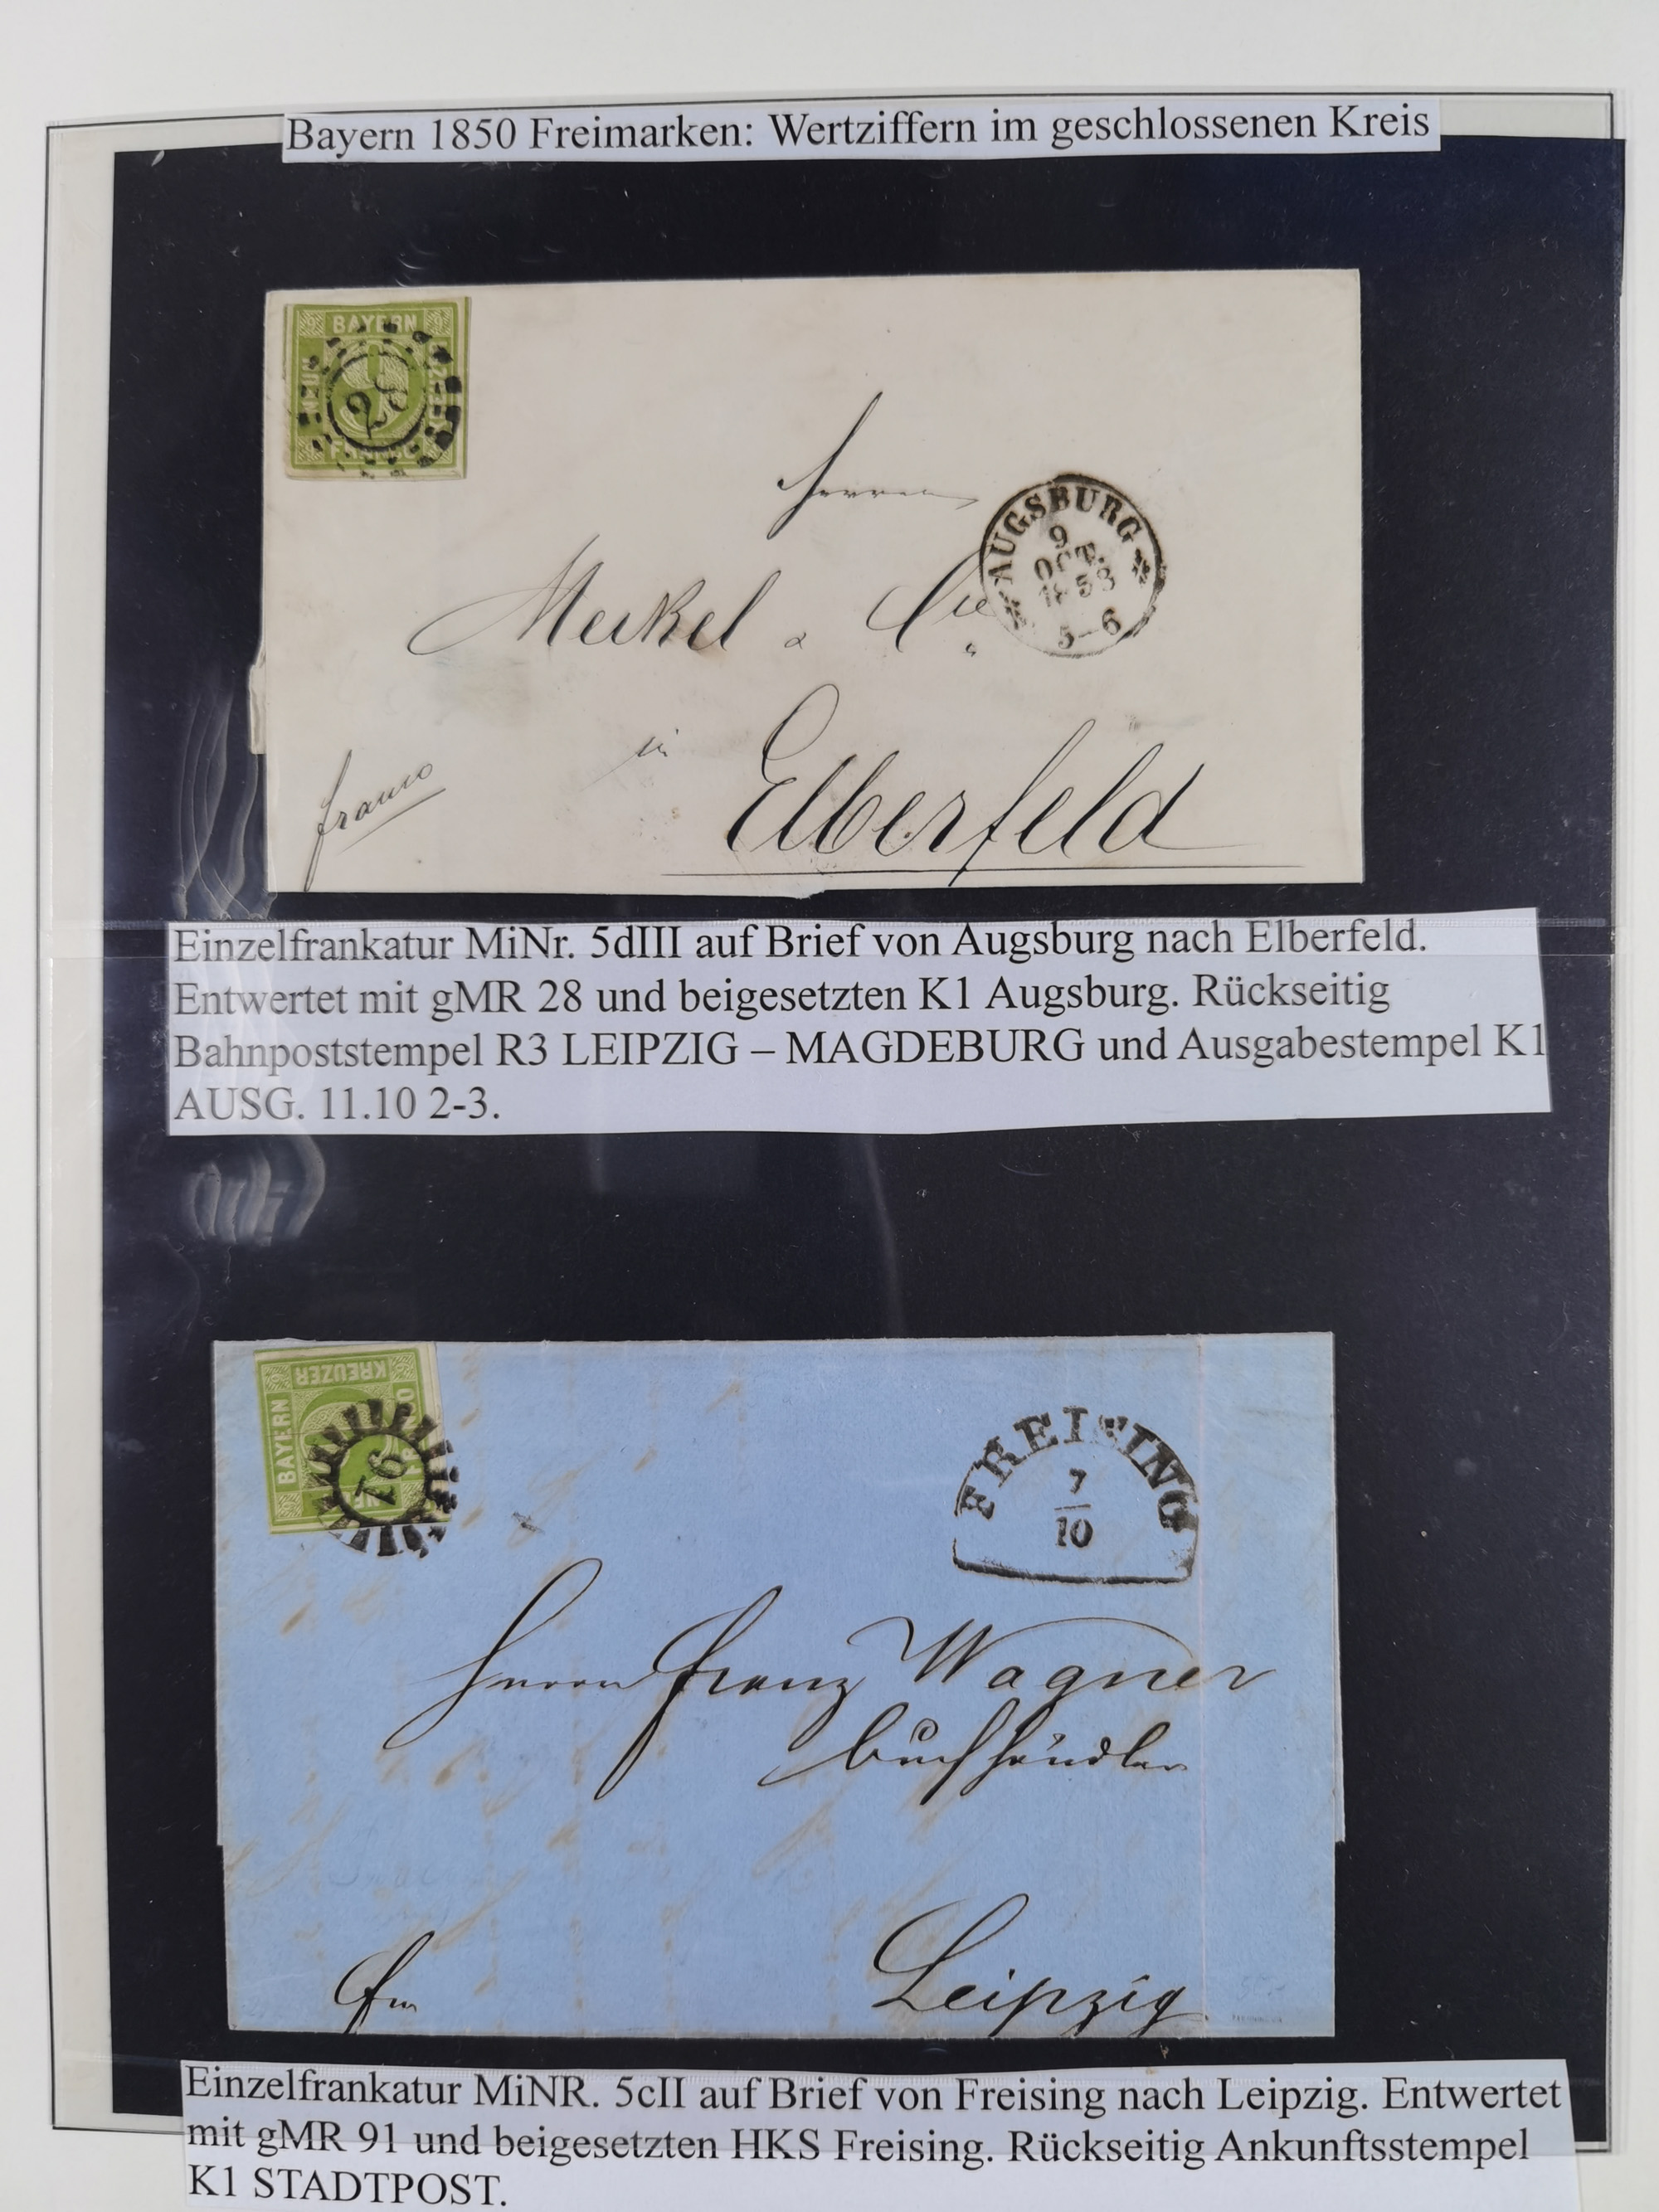 Bayern 1850 Freimarken: Wertziffern im geschlossenen Kreis
BAYERN
NEUN
28
FRANCO
Herren
AUGSBURG
9
OCT.
1858
5-6
Meckel & Cie
in
franco
Elberfeld
Einzelfrankatur MiNr. 5dIII auf Brief von Augsburg nach Elberfeld.
Entwertet mit gMR 28 und beigesetzten K1 Augsburg. Rückseitig
Bahnpoststempel R3 LEIPZIG – MAGDEBURG und Ausgabestempel K1
AUSG. 11.10 2-3.
KREUZER
BAYERN
91
FREISING
7
10
Herrn Franz Wagner
Buchhändler
Leipzig
Einzelfrankatur MiNR. 5cII auf Brief von Freising nach Leipzig. Entwertet
mit gMR 91 und beigesetzten HKS Freising. Rückseitig Ankunftsstempel
K1 STADTPOST.